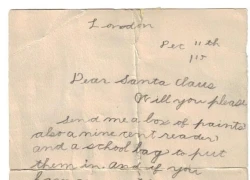 London
Dec 11th
Dear Santa Claus
Will you please
send me a box of paints
also a nine cent reader
and a school bag to put
them in. and if you
have